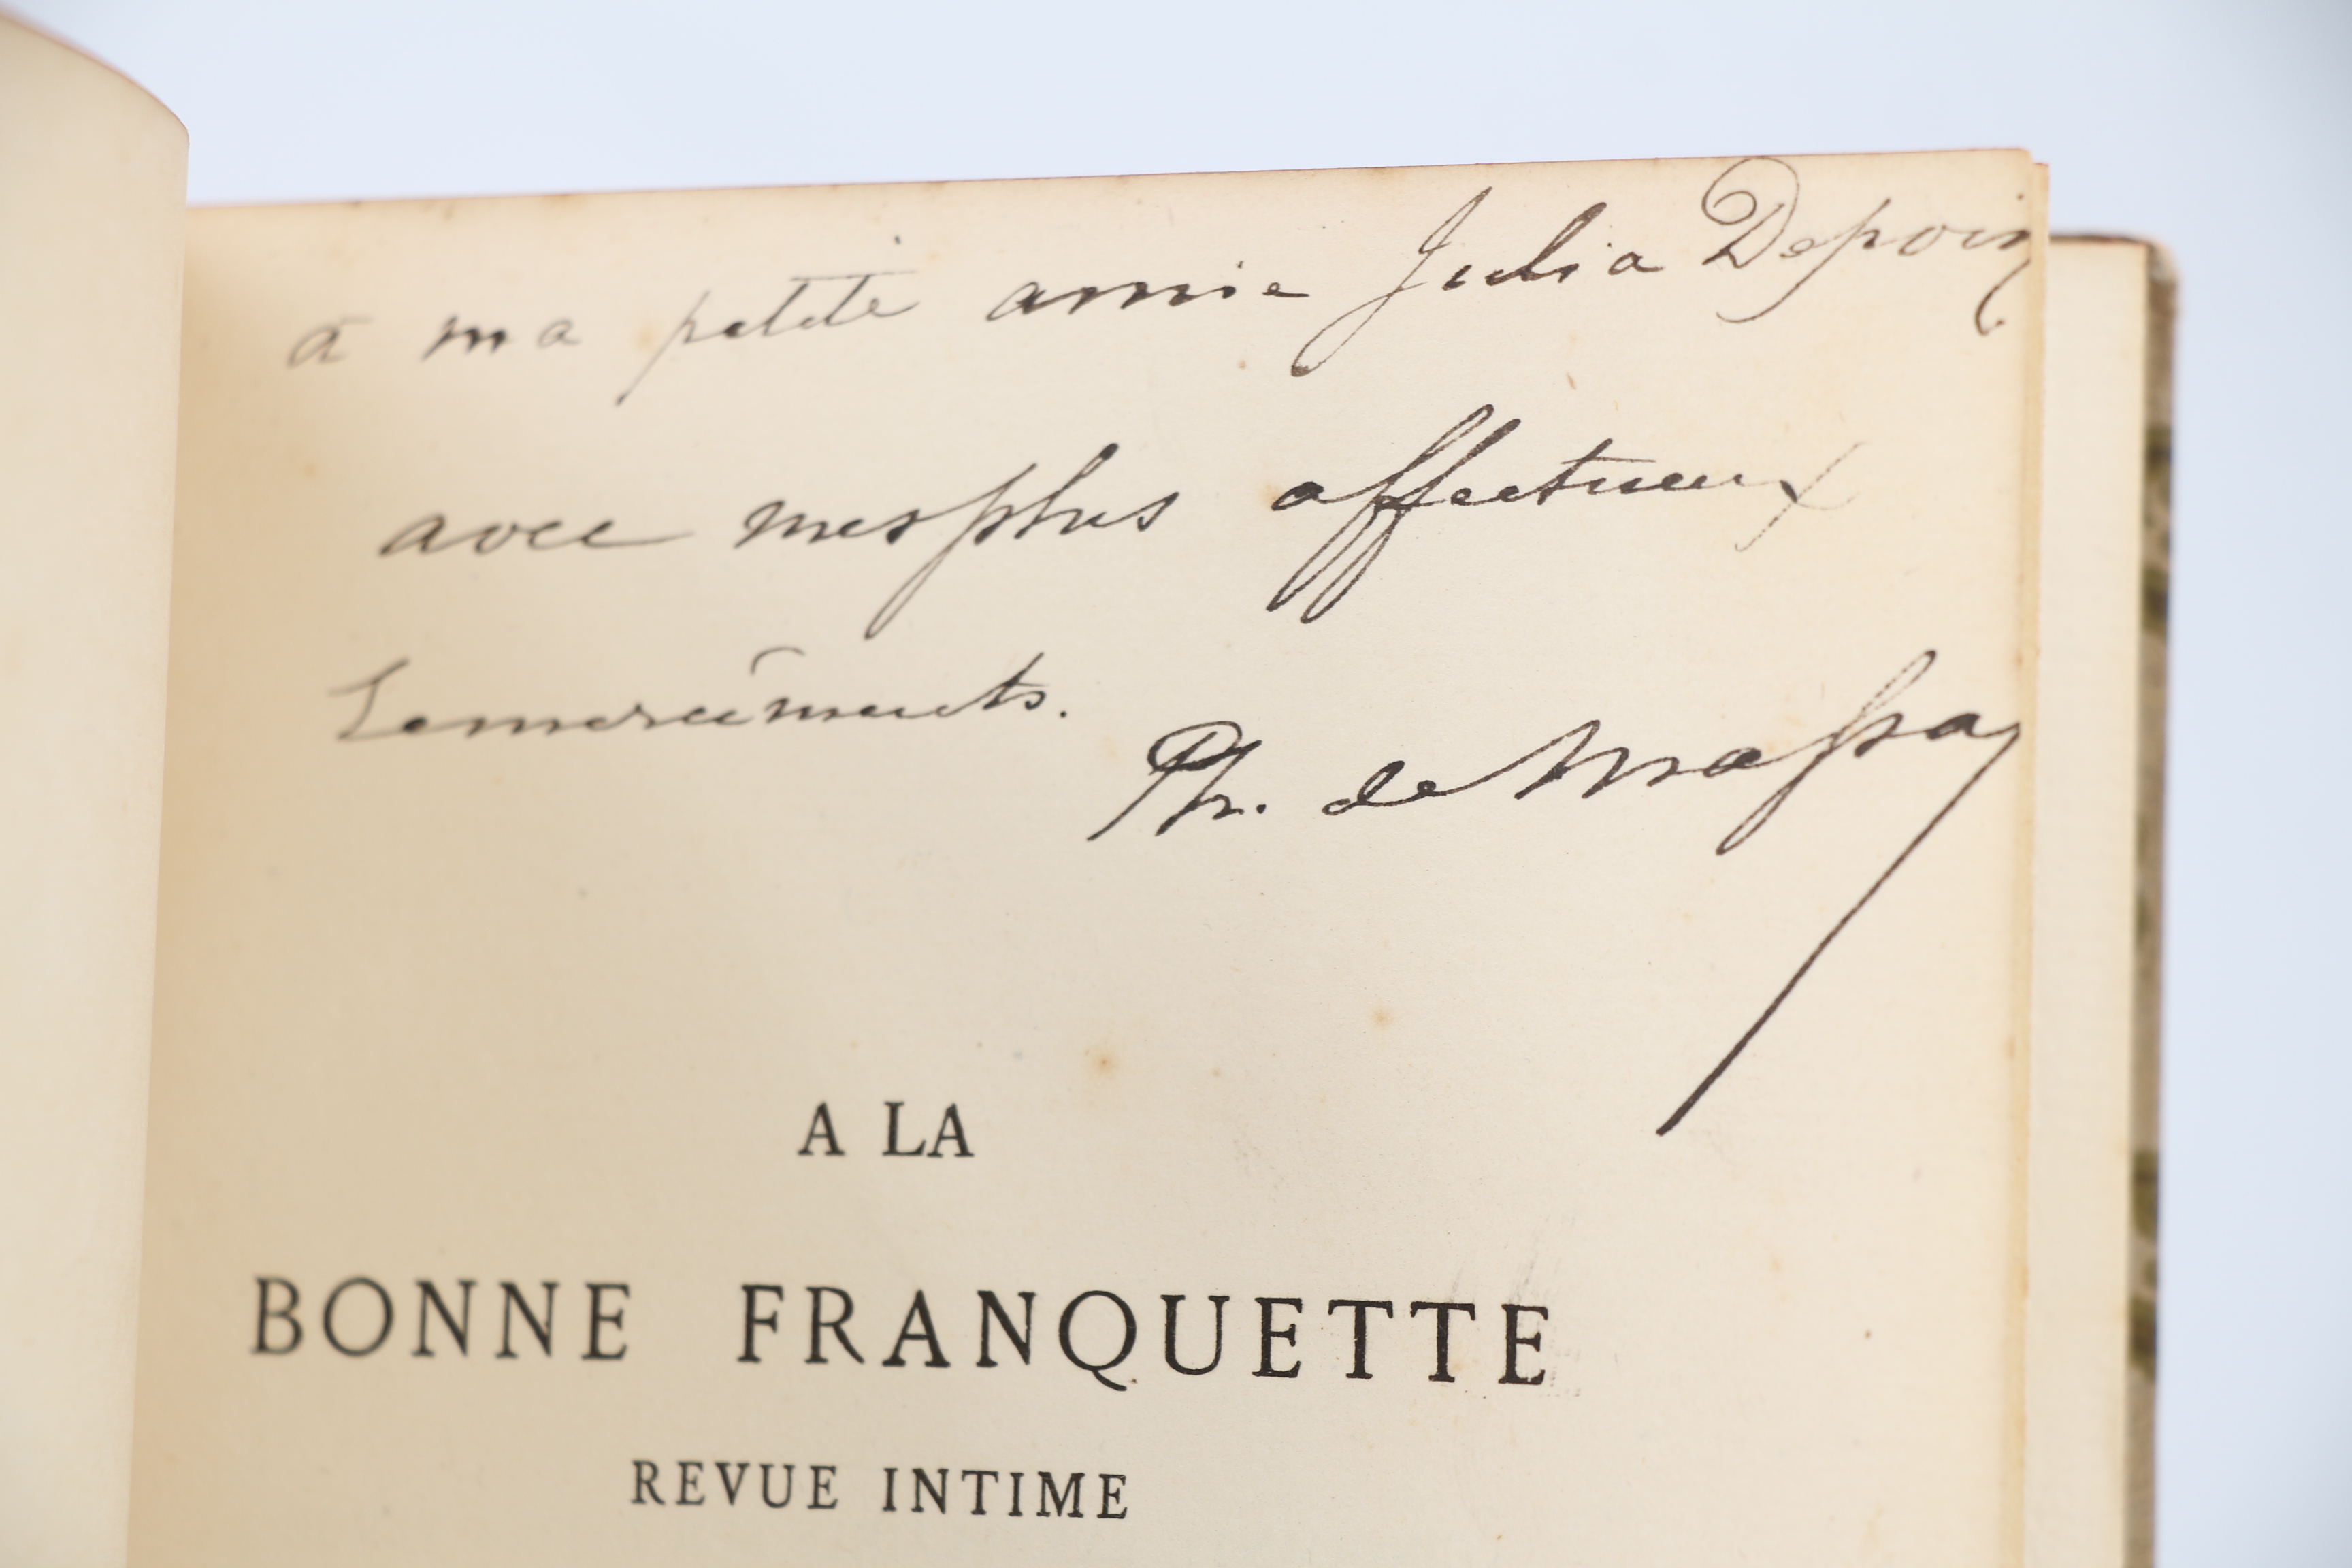 à ma petite amie Julia Depoix
avec mes plus affectueux
remerciements.
Ph. de Massa
A LA
BONNE FRANQUETTE
REVUE INTIME